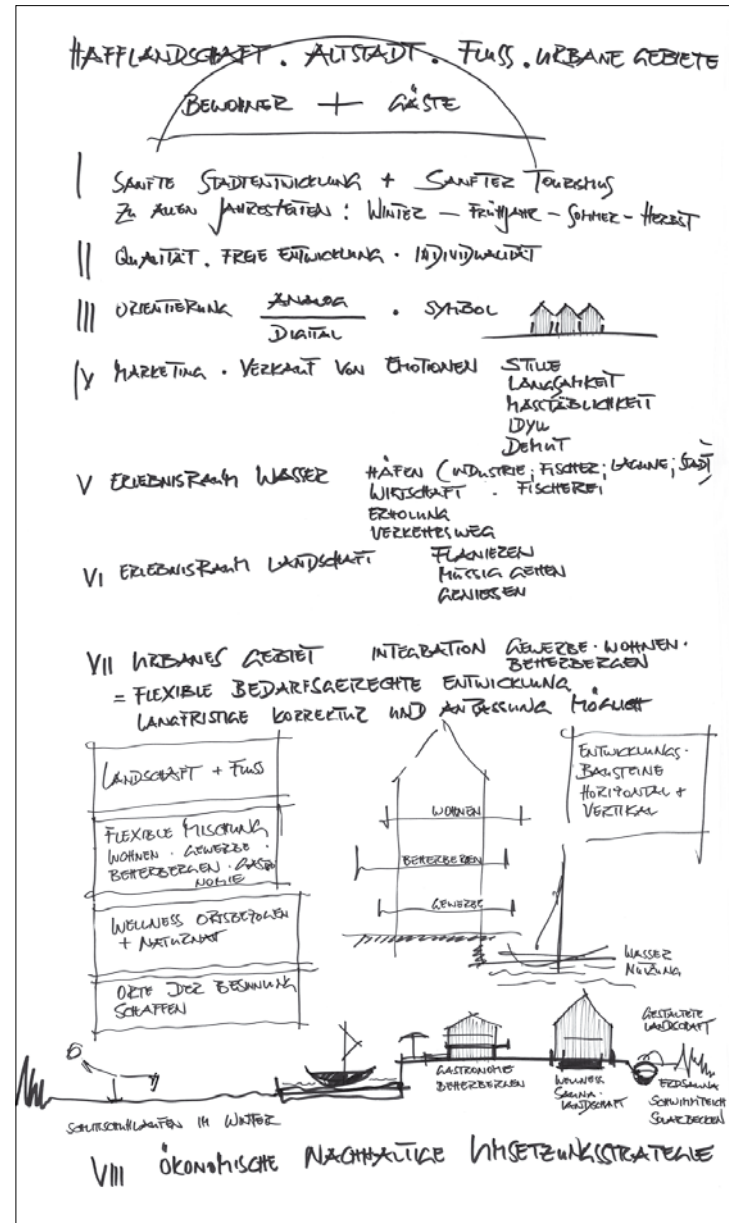 HAFFLANDSCHAFT . ALTSTADT . FLUSS . URBANE GEBIETE
BEWOHNER + GÄSTE
I SANFTE STADTENTWICKLUNG + SANFTER TOURISMUS
ZU ALLEN JAHRESZEITEN : WINTER – FRÜHJAHR – SOMMER – HERBST
II QUALITÄT . FREIE ENTWICKLUNG . INDIVIDUALITÄT
III ORIENTIERUNG ANALOG . SYMBOL
DIGITAL
IV MARKETING . VERKAUF VON EMOTIONEN STILLE
LANGSAMKEIT
MASSTÄBLICHKEIT
IDYLL
DEMUT
V ERLEBNISRAUM WASSER HÄFEN (INDUSTRIE; FISCHER; LAGUNE; STADT)
WIRTSCHAFT . FISCHEREI
ERHOLUNG
VERKEHRSWEG
VI ERLEBNISRAUM LANDSCHAFT FLANIEREN
MÜSSIG GEHEN
GENIESSEN
VII URBANES GEBIET INTEGRATION GEWERBE . WOHNEN .
BEHERBERGEN
= FLEXIBLE BEDARFSGERECHTE ENTWICKLUNG
LANGFRISTIGE KORREKTUR UND ANPASSUNG MÖGLICH
LANDSCHAFT + FLUSS
FLEXIBLE MISCHUNG
WOHNEN . GEWERBE .
BEHERBERGEN . GASTRO
NOMIE
WELLNESS ORTSBEZOGEN
+ NATURNAH
ORTE DER BESINNUNG
SCHAFFEN
WOHNEN
BEHERBERGEN
GEWERBE
ENTWICKLUNGS-
BAUSTEINE
HORIZONTAL +
VERTIKAL
WASSER
NUTZUNG
SCHLITTSCHUHLAUFEN IM WINTER
GASTRONOMIE
BEHERBERGEN
WELLNESS
SAUNA-
LANDSCHAFT
GESTALTETE
LANDSCHAFT
ERDSAUNA
SCHWIMMTEICH
SOLARBECKEN
VIII ÖKONOMISCHE NACHHALTIGE UMSETZUNGSSTRATEGIE